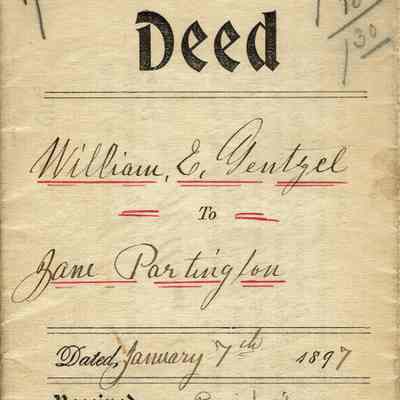 Deed
William, E, Gentzel
To
Jane Partington
Dated, January 7th 1897